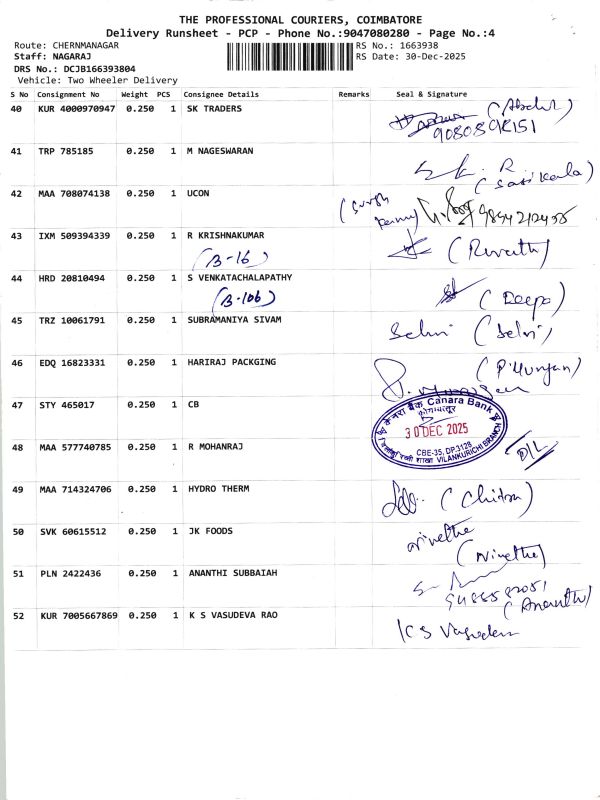 THE PROFESSIONAL COURIERS, COIMBATORE
Delivery Runsheet - PCP - Phone No.:9047080280 - Page No.:4
Route: CHERNMANAGAR
RS No.: 1663938
Staff: NAGARAJ
RS Date: 30-Dec-2025
DRS No.: DCJB166393804
Vehicle: Two Wheeler Delivery
S No Consignment No Weight PCS Consignee Details Remarks Seal & Signature
40 KUR 4000970947 0.250 1 SK TRADERS
41 TRP 785185 0.250 1 M NAGESWARAN
R
(Sasikala)
42 MAA 708074138 0.250 1 UCON
43 IXM 509394339 0.250 1 R KRISHNAKUMAR
(B-16)
(Revathi)
44 HRD 20810494 0.250 1 S VENKATACHALAPATHY
(B-106)
(Deepa)
45 TRZ 10061791 0.250 1 SUBRAMANIYA SIVAM
Selvi (Selvi)
46 EDQ 16823331 0.250 1 HARIRAJ PACKGING
(P. Murugan)
47 STY 465017 0.250 1 CB
केनरा बैंक Canara Bank
कोयम्बत्तूर
30 DEC 2025
CBE-35, DP.3128
VILANKURICHI BRANCH
48 MAA 577740785 0.250 1 R MOHANRAJ
D/L
49 MAA 714324706 0.250 1 HYDRO THERM
(Chitra)
50 SVK 60615512 0.250 1 JK FOODS
Nivetha
(Nivetha)
51 PLN 2422436 0.250 1 ANANTHI SUBBAIAH
(Ananthi)
52 KUR 7005667869 0.250 1 K S VASUDEVA RAO
K S Vasudeva